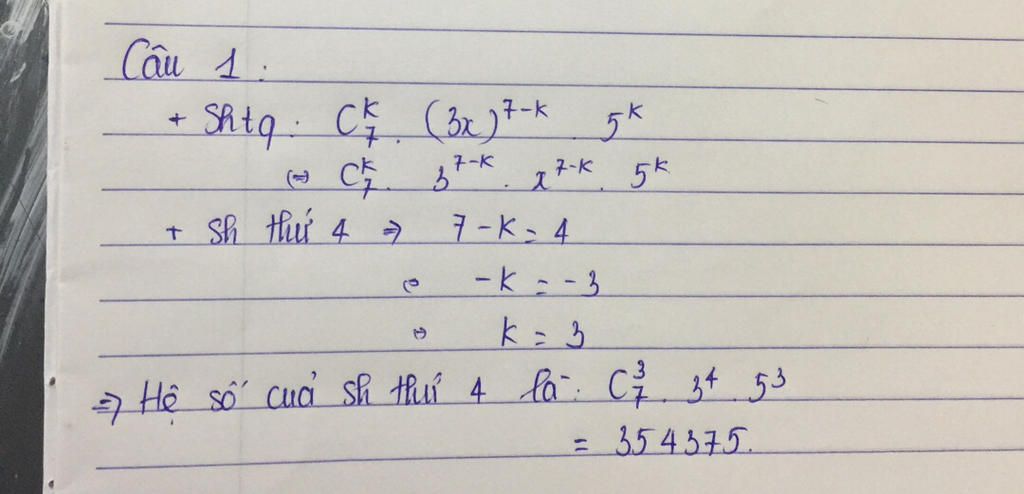 Câu 1:
+ Shtq: C₇ᵏ. (3x)⁷⁻ᵏ. 5ᵏ
(⇔) C₇ᵏ. 3⁷⁻ᵏ. x⁷⁻ᵏ. 5ᵏ
+ Sh thứ 4 ⇒ 7-k = 4
⇔ -k = -3
⇔ k = 3
⇒ Hệ số của sh thứ 4 là: C₇³. 3⁴. 5³
= 354375.